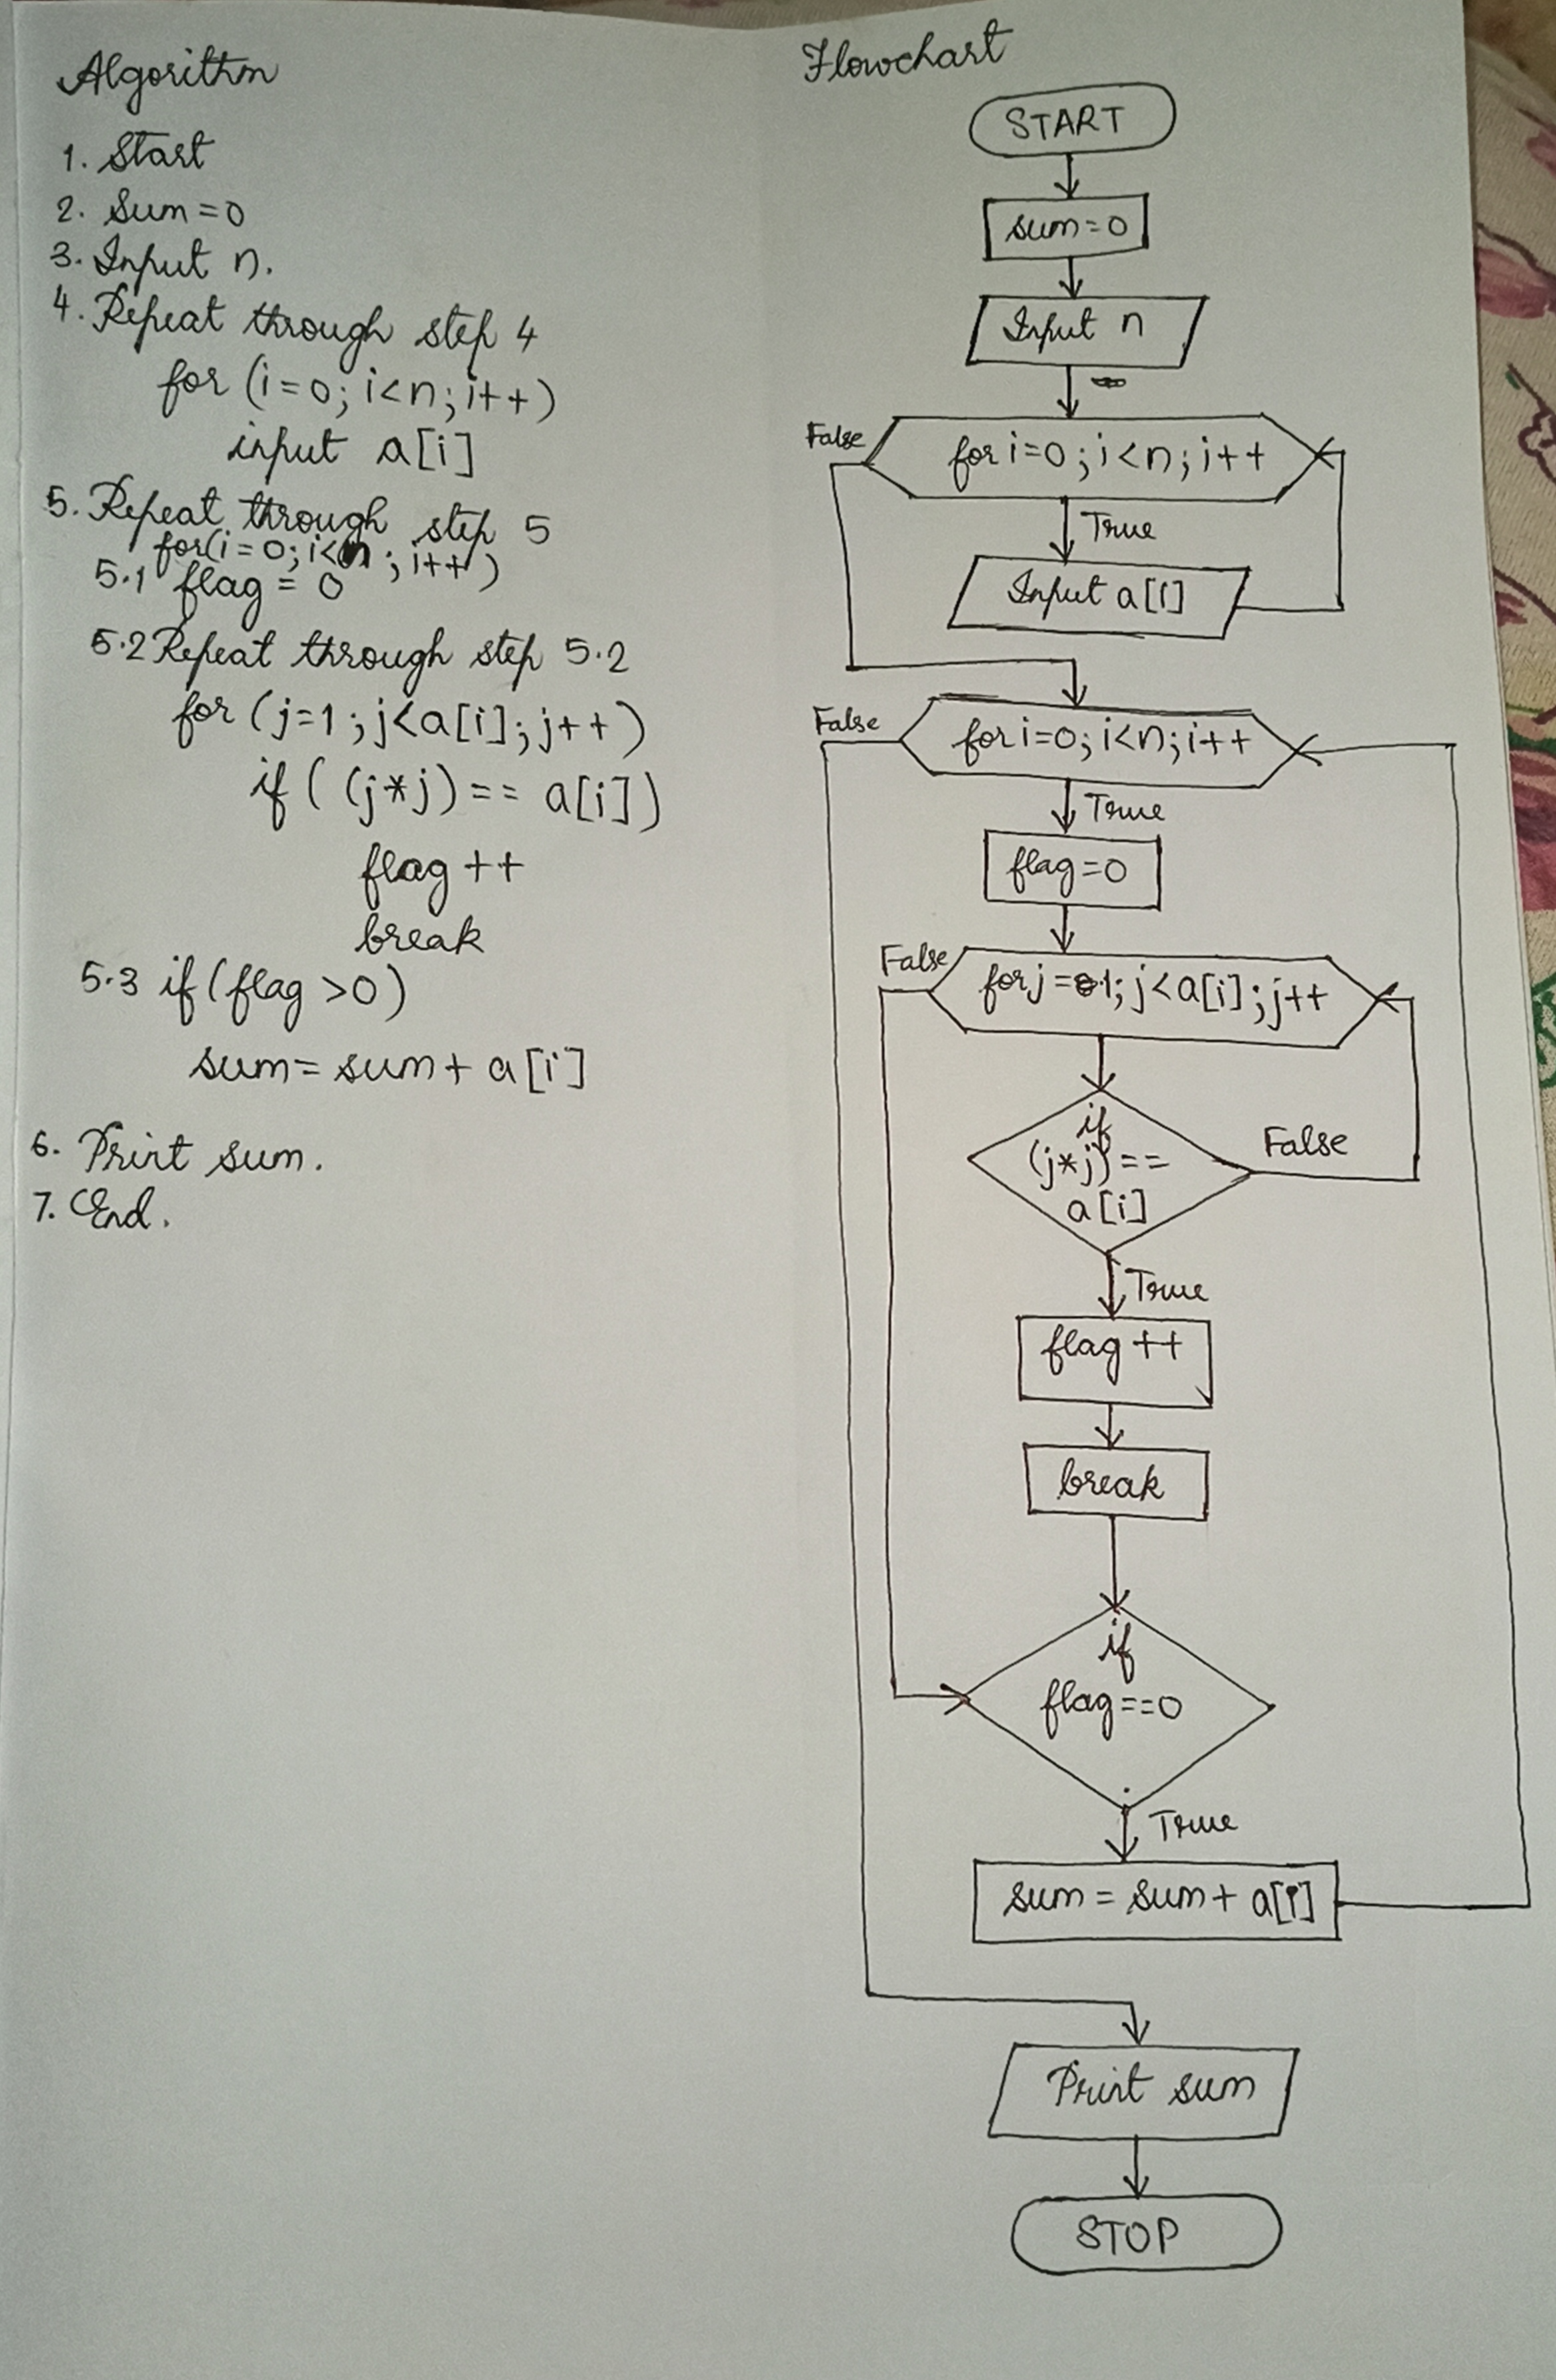 Algorithm
1. Start
2. Sum=0
3. Input n.
4. Repeat through step 4
for (i=0; i<n; i++)
input a[i]
5. Repeat through step 5
for(i=0; i<n; i++)
5.1 flag = 0
5.2 Repeat through step 5.2
for (j=1; j<a[i]; j++)
if ( (j*j) == a[i])
flag ++
break
5.3 if (flag >0)
sum= sum+ a[i]
6. Print sum.
7. End.
Flowchart
START
sum=0
Input n
False
for i=0; i<n; i++
True
Input a[i]
False
for i=0; i<n; i++
True
flag=0
False
for j=1; j<a[i]; j++
if
(j*j)==
a[i]
False
True
flag ++
break
if
flag==0
True
sum = sum+ a[i]
Print sum
STOP